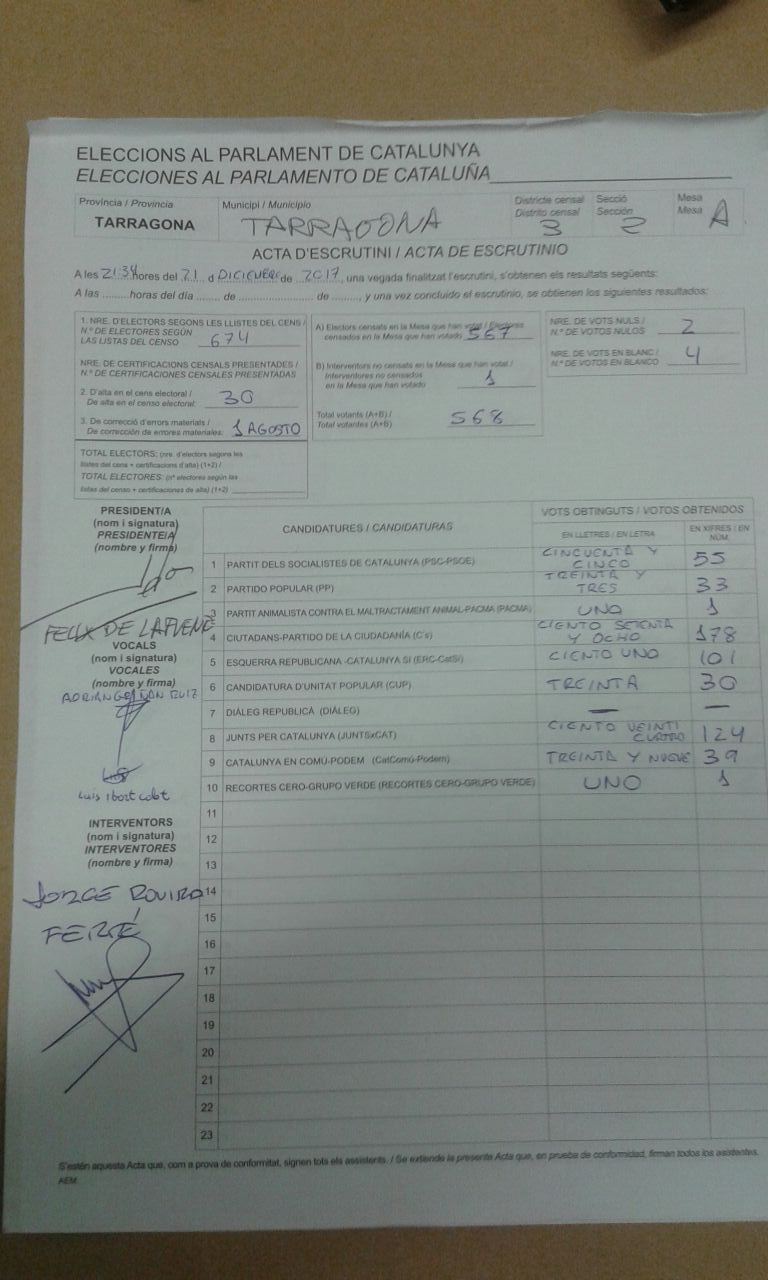 ELECCIONS AL PARLAMENT DE CATALUNYA
ELECCIONES AL PARLAMENTO DE CATALUÑA
Província / Provincia
TARRAGONA
Municipi / Municipio
TARRAGONA
Districte censal
Distrito censal
3
Secció
Sección
2
Mesa
Mesa
A
ACTA D'ESCRUTINI / ACTA DE ESCRUTINIO
A les 21:34 hores del 21 d DICIEMBRE de 2017, una vegada finalitzat l'escrutini, s'obtenen els resultats següents:
A las ......... horas del día ....... de ........................ de ........, y una vez concluido el escrutinio, se obtienen los siguientes resultados:
1. NRE. D'ELECTORS SEGONS LES LLISTES DEL CENS /
N.º DE ELECTORES SEGÚN
LAS LISTAS DEL CENSO 674
NRE. DE CERTIFICACIONS CENSALS PRESENTADES /
N.º DE CERTIFICACIONES CENSALES PRESENTADAS
2. D'alta en el cens electoral /
De alta en el censo electoral: 30
3. De correcció d'errors materials /
De corrección de errores materiales: 1 AGOSTO
TOTAL ELECTORS: (nre. d'electors segons les
llistes del cens + certificacions d'alta) (1+2) /
TOTAL ELECTORES: (nº electores según las
listas del censo + certificaciones de alta) (1+2)
A) Electors censats en la Mesa que han votat / Electores
censados en la Mesa que han votado 567
B) Interventors no censats en la Mesa que han votat /
Interventores no censados
en la Mesa que han votado 1
Total votants (A+B) /
Total votantes (A+B) 568
NRE. DE VOTS NULS /
N.º DE VOTOS NULOS 2
NRE. DE VOTS EN BLANC /
N.º DE VOTOS EN BLANCO 4
PRESIDENT/A
(nom i signatura)
PRESIDENTE/A
(nombre y firma)
FELIX DE LAFUENTE
VOCALS
(nom i signatura)
VOCALES
(nombre y firma)
ADRIAN RUIZ
Luis
INTERVENTORS
(nom i signatura)
INTERVENTORES
(nombre y firma)
JORGE ROVIRA
FERRÉ
CANDIDATURES / CANDIDATURAS
VOTS OBTINGUTS / VOTOS OBTENIDOS
EN LLETRES / EN LETRA
EN XIFRES / EN NÚM.
1 PARTIT DELS SOCIALISTES DE CATALUNYA (PSC-PSOE) CINCUENTA Y CINCO 55
2 PARTIDO POPULAR (PP) TREINTA Y TRES 33
3 PARTIT ANIMALISTA CONTRA EL MALTRACTAMENT ANIMAL-PACMA (PACMA) UNO 1
4 CIUTADANS-PARTIDO DE LA CIUDADANÍA (C's) CIENTO SETENTA Y OCHO 178
5 ESQUERRA REPUBLICANA -CATALUNYA SÍ (ERC-CatSí) CIENTO UNO 101
6 CANDIDATURA D'UNITAT POPULAR (CUP) TREINTA 30
7 DIÀLEG REPUBLICÀ (DIÀLEG) — —
8 JUNTS PER CATALUNYA (JUNTSxCAT) CIENTO VEINTI CUATRO 124
9 CATALUNYA EN COMÚ-PODEM (CatComú-Podem) TREINTA Y NUEVE 39
10 RECORTES CERO-GRUPO VERDE (RECORTES CERO-GRUPO VERDE) UNO 1
11
12
13
14
15
16
17
18
19
20
21
22
23
S'estén aquesta Acta que, com a prova de conformitat, signen tots els assistents. / Se extiende la presente Acta que, en prueba de conformidad, firman todos los asistentes.
AEM.